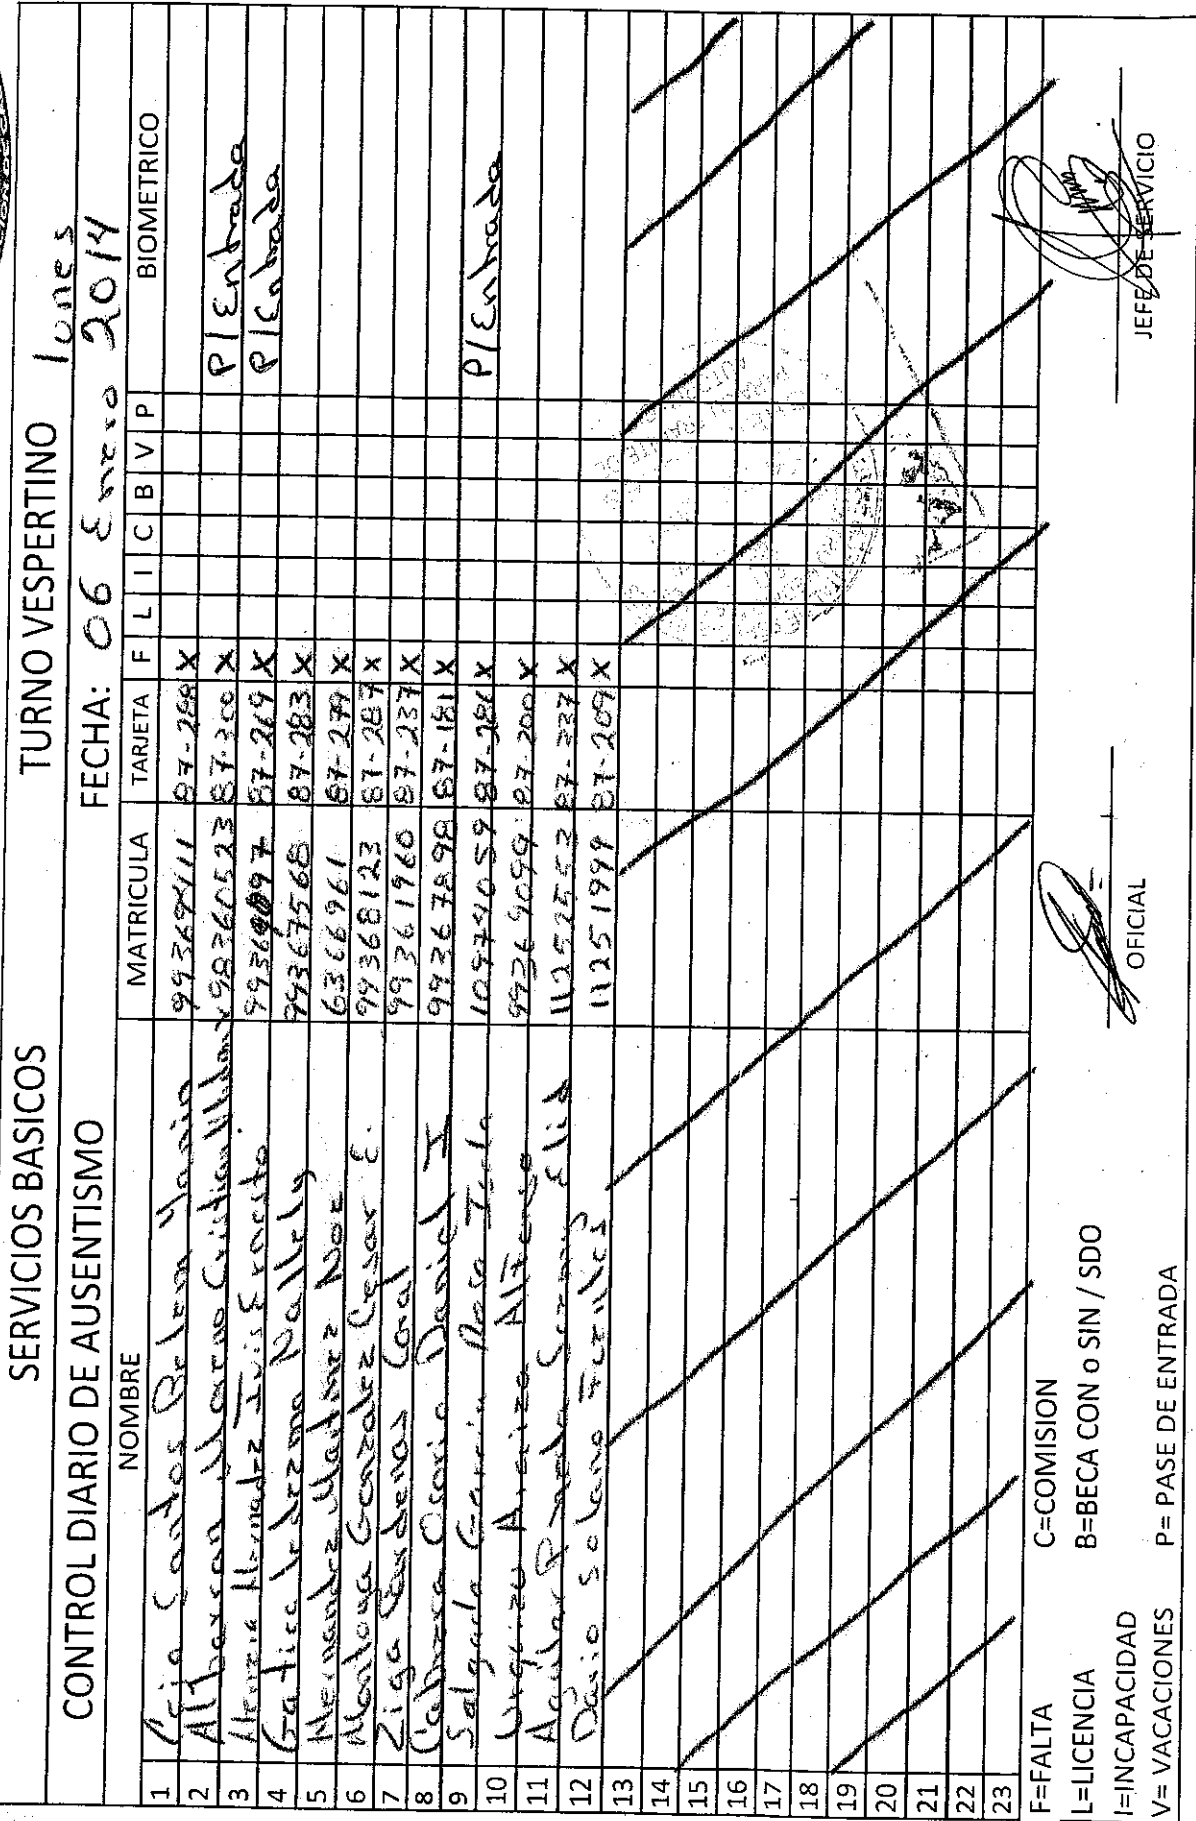 SERVICIOS BASICOS TURNO VESPERTINO lunes
CONTROL DIARIO DE AUSENTISMO FECHA: 06 Enero 2014
NOMBRE MATRICULA TARJETA F L I C B V P BIOMETRICO
1 Santos Belem 99369411 87-288 X
2 Albarran Moreno Cristian 98360523 87-300 X P/Entrada
3 Hernandez Luis Ernesto 87-269 X P/Entrada
4 Gatica Ledezma Nallely 99367568 87-283 X
5 Hernandez Martinez Noe 6366961 87-279 X
6 Montoya Gonzalez Cesar E. 99368123 87-287 X
7 Ziga Cardenas Coral 99361960 87-237 X
8 Cabrera Osorio Daniel I 99367898 87-181 X
9 Salgado Garcia Rosa Isela 10974059 87-286 X P/Entrada
10 Urquizo Alfonso 99369099 87-200 X
11 Aguilar Pineda Serrano Elid 11252552 87-337 X
12 Dario Solano 11251999 87-209 X
13
14
15
16
17
18
19
20
21
22
23
F=FALTA C=COMISION
L=LICENCIA B=BECA CON o SIN / SDO
I=INCAPACIDAD
V= VACACIONES P= PASE DE ENTRADA
OFICIAL
JEFE DE SERVICIO